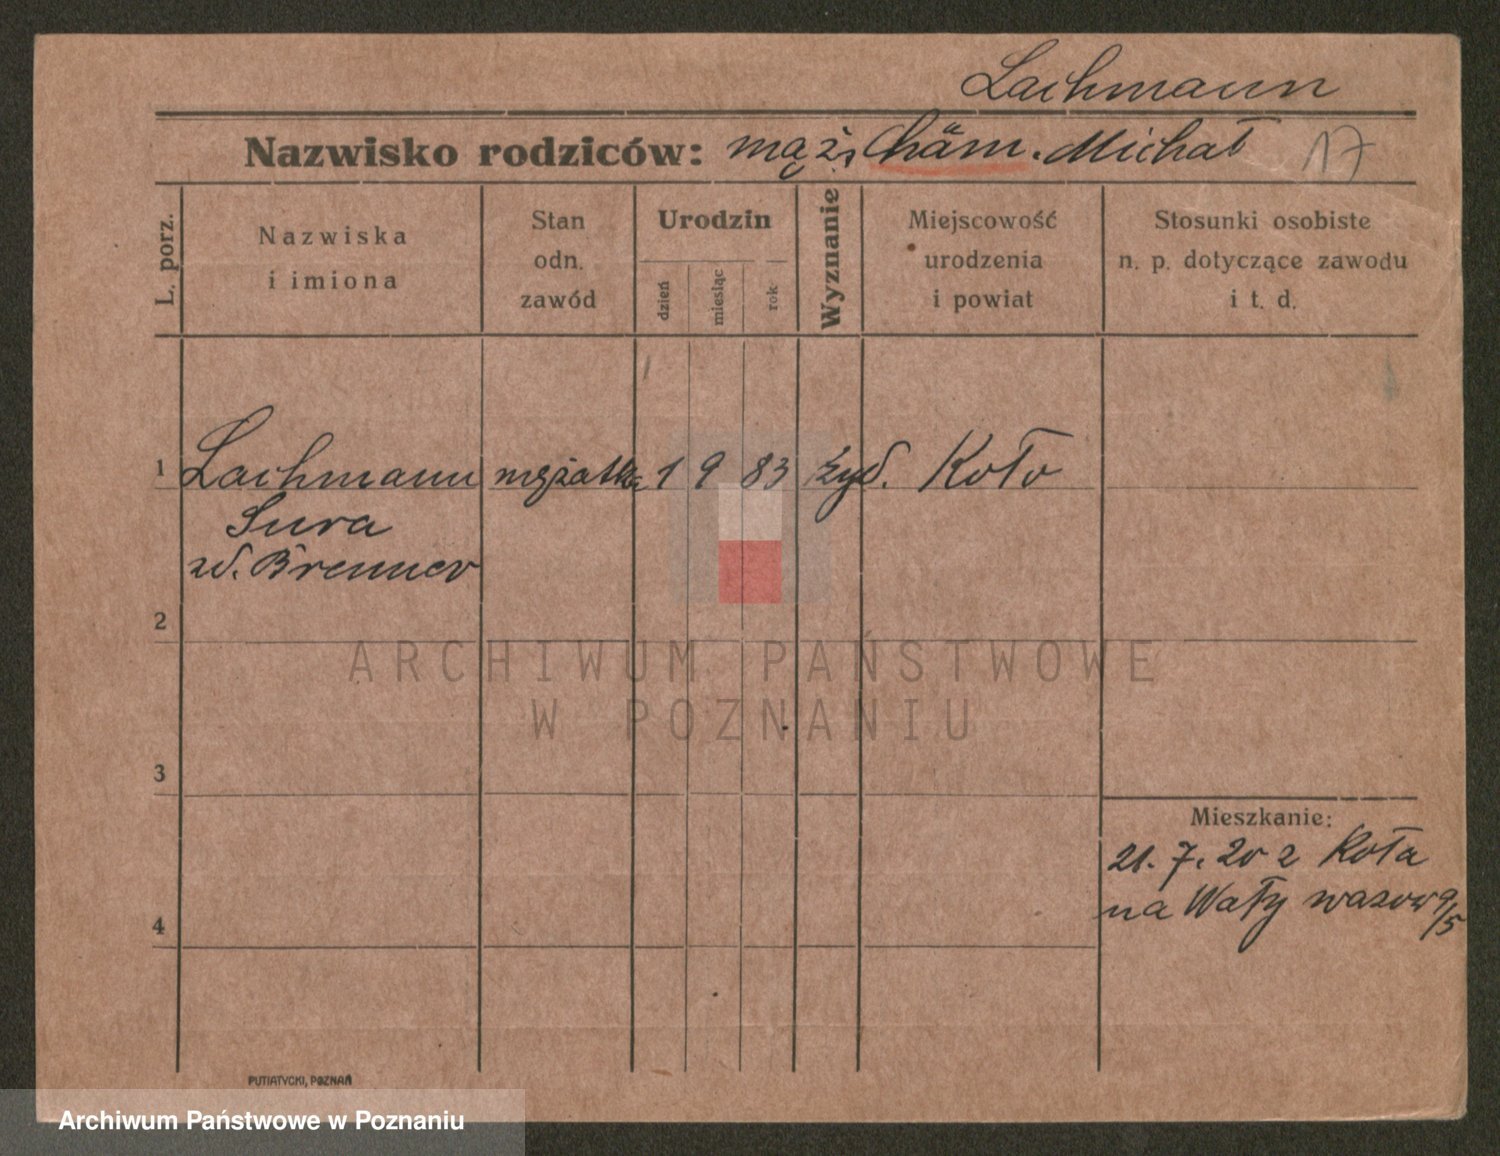 Lachmann
Nazwisko rodziców: mąż: Chäm. Michał 17
L. porz.
Nazwiska
i imiona
Stan
odn.
zawód
Urodzin
dzień
miesiąc
rok
Wyznanie
Miejscowość
urodzenia
i powiat
Stosunki osobiste
n. p. dotyczące zawodu
i t. d.
1 Lachmann mężatka 1 9 83 żyd. Koło
Sura
zd. Brenner
2
ARCHIWUM PAŃSTWOWE
W POZNANIU
3
Mieszkanie:
21. 7. 20 z Koła
na Wały wazow 9/5
4
PUTIATYCKI, POZNAŃ
Archiwum Państwowe w Poznaniu